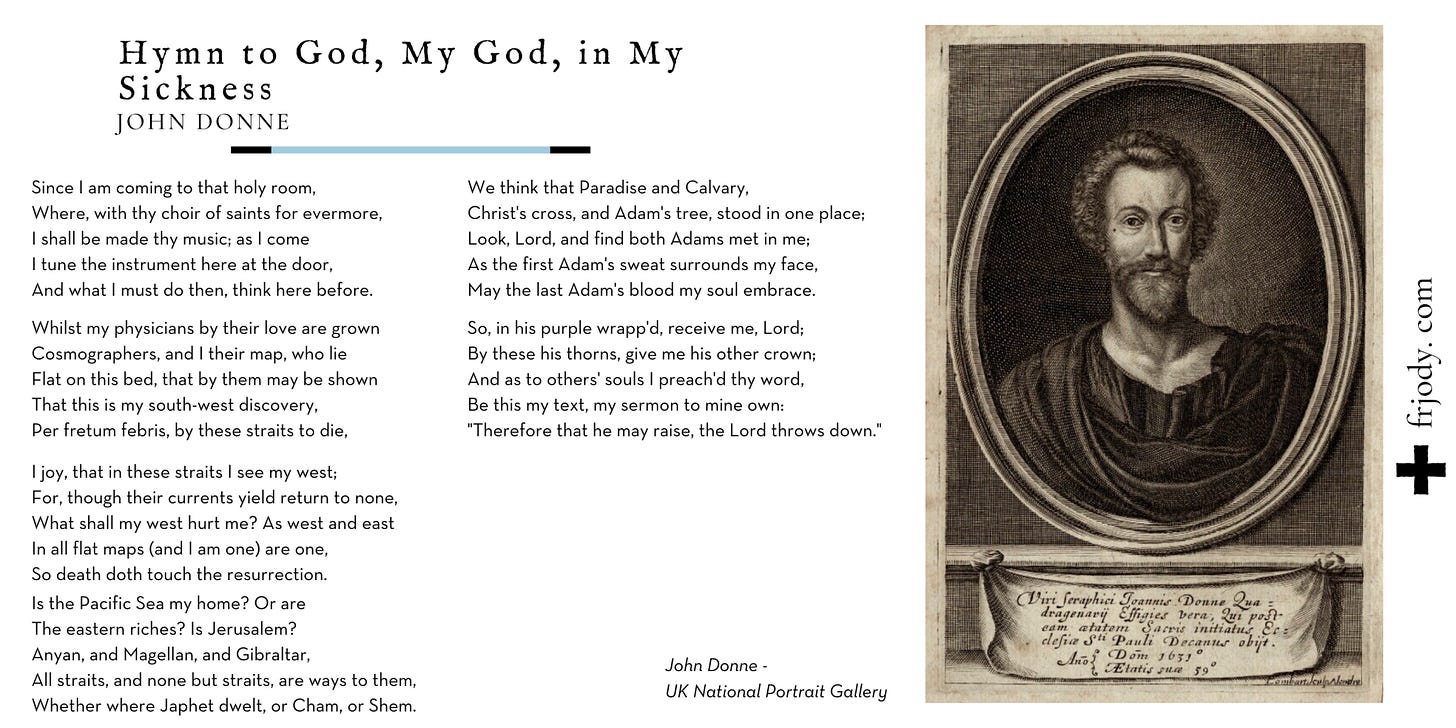 Hymn to God, My God, in My
Sickness
JOHN DONNE
Since I am coming to that holy room,
Where, with thy choir of saints for evermore,
I shall be made thy music; as I come
I tune the instrument here at the door,
And what I must do then, think here before.
Whilst my physicians by their love are grown
Cosmographers, and I their map, who lie
Flat on this bed, that by them may be shown
That this is my south-west discovery,
Per fretum febris, by these straits to die,
I joy, that in these straits I see my west;
For, though their currents yield return to none,
What shall my west hurt me? As west and east
In all flat maps (and I am one) are one,
So death doth touch the resurrection.
Is the Pacific Sea my home? Or are
The eastern riches? Is Jerusalem?
Anyan, and Magellan, and Gibraltar,
All straits, and none but straits, are ways to them,
Whether where Japhet dwelt, or Cham, or Shem.
We think that Paradise and Calvary,
Christ's cross, and Adam's tree, stood in one place;
Look, Lord, and find both Adams met in me;
As the first Adam's sweat surrounds my face,
May the last Adam's blood my soul embrace.
So, in his purple wrapp'd, receive me, Lord;
By these his thorns, give me his other crown;
And as to others' souls I preach'd thy word,
Be this my text, my sermon to mine own:
"Therefore that he may raise, the Lord throws down."
John Donne -
UK National Portrait Gallery
Viri seraphici Joannis Donne Qua=
dragenarij Effigies vera, Qui post
eam ætatem Sacris initiatus Ec=
clesiæ Sti Pauli Decanus obijt.
Año { Dom 1631º
Ætatis suæ 59º
Lombart sculp
frjody. com